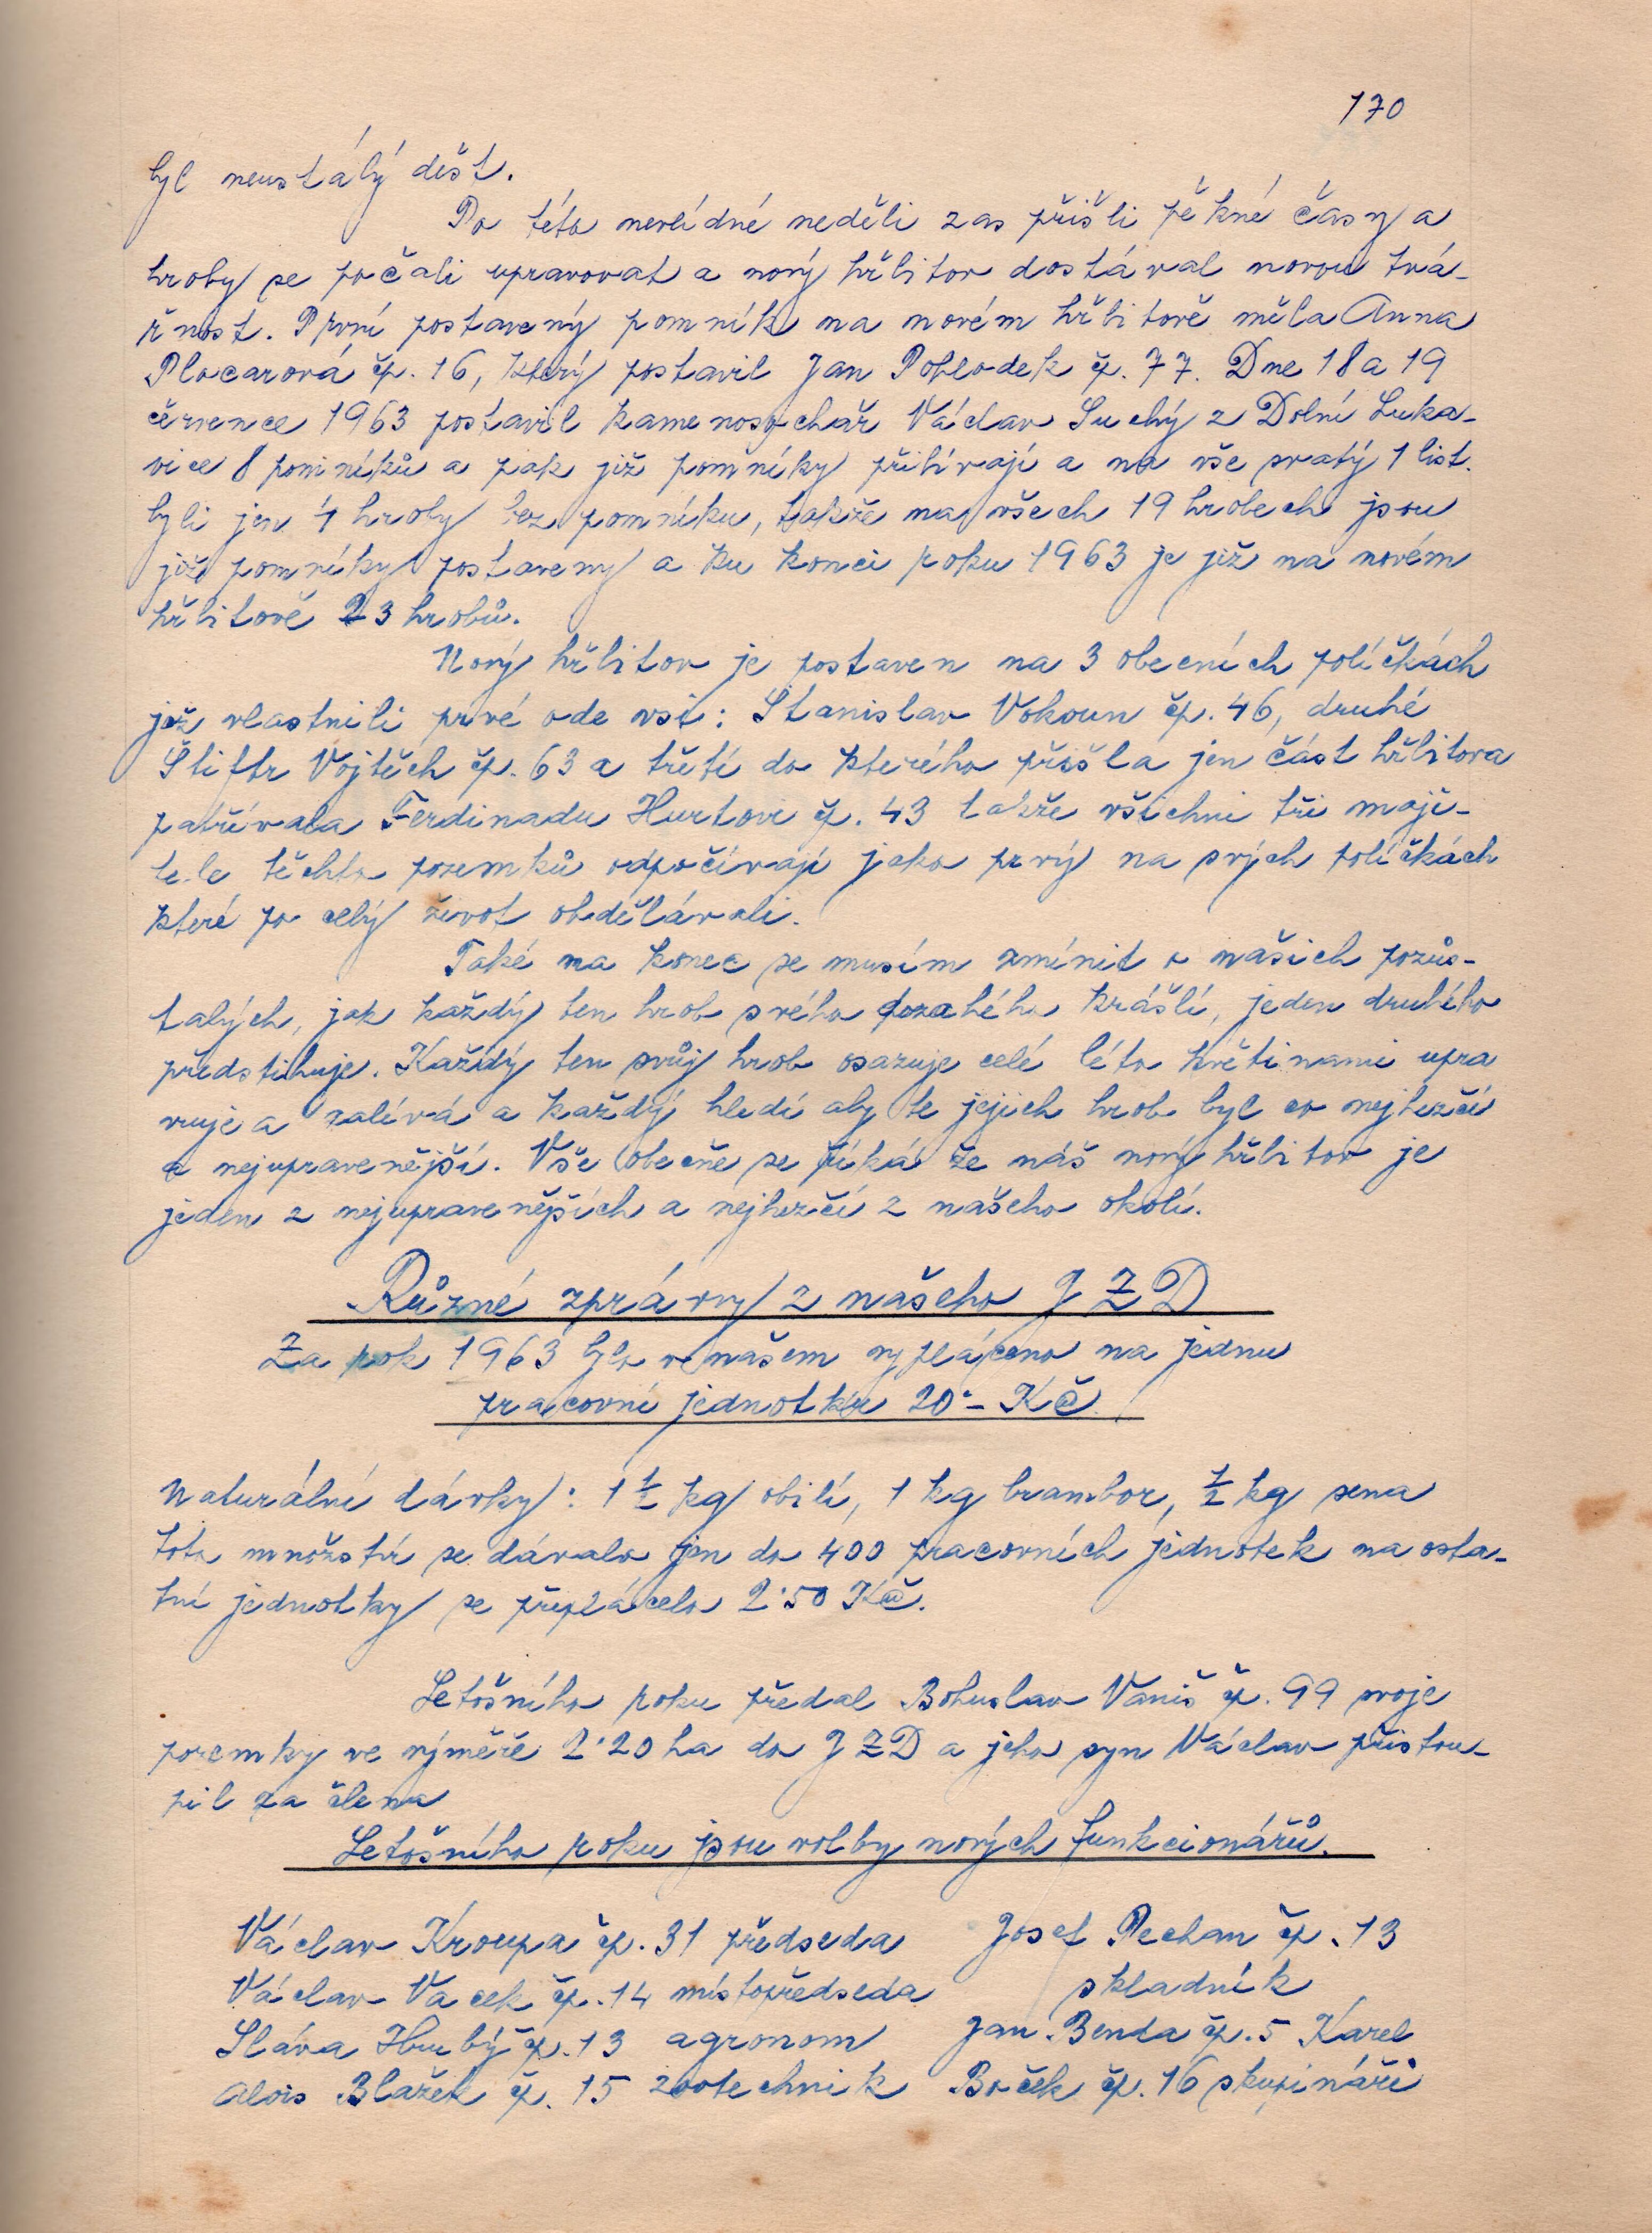 170
byl neustálý déšt.
Po této nevlídné neděli zas přišli pěkné časy a
hroby se počali upravovat a nový hřbitov dostával novou tvá-
řnost. První postavený pomník na novém hřbitově měla Anna
Plocarová čp. 16, který postavil Jan Pohlodek čp. 77. Dne 18 a 19
července 1963 postavil kamenosochař Václav Suchý z Dolní Luka-
vice 8 pomníků a pak již pomníky přibívají a na vše svatý 1 list.
byli jen 4 hroby bez pomníku, takže na všech 19 hrobech jsou
již pomníky postaveny a ku konci roku 1963 je již na novém
hřbitově 23 hrobů.
Nový hřbitov je postaven na 3 obecních políčkách
jež vlastnili prvé ode vsi: Stanislav Vokoun čp. 46, druhé
Štiftr Vojtěch čp. 63 a třetí do kterého přišla jen část hřbitova
patřívala Ferdinadu Hurtovi čp. 43 takže všichni tři maji-
tele těchto pozemků odpočívají jako prvý na svých políčkách
které po celý život obdělávali.
Také na konec se musím zmínit o našich pozůs-
talých, jak každý ten hrob svého drahého krášlí, jeden druhého
předstihuje. Každý ten svůj hrob osazuje celé léto květinami upra
vuje a zalívá a každý hledí aby te jejich hrob byl co nejhezčí
a nejupravenější. Vše obecně se říká že náš nový hřbitov je
jeden z nejupravenějších a nejhezčí z našeho okolí.
Různé zprávy z našeho JZD
Za rok 1963 bylo v našem vypláceno na jednu
pracovní jednotku 20·- Kč
Naturální dávky: 1 ½ kg obilí, 1 kg brambor, ½ kg sena
toto množství se dávalo jen do 400 pracovních jednotek na osta-
tní jednotky se připlácelo 2·50 Kč.
Letošního roku předal Bohuslav Vaniš čp. 99 svoje
pozemky ve výměře 2·20 ha do JZD a jeho syn Václav přistou-
pil za člena
Letošního roku jsou volby nových funkcionářů.
Václav Kroupa čp. 31 předseda
Václav Vacek čp. 14 místopředseda
Sláva Hrubý čp. 13 agronom
Alois Blažek čp. 15 zootechnik
Josef Pechan čp. 13
skladník
Jan Benda čp. 5 Karel
Boček čp. 16 skupináři